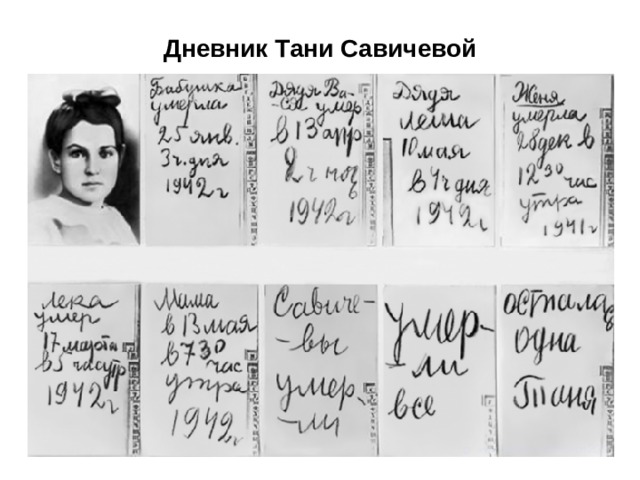 Дневник Тани Савичевой
Бабушка
умерла
25 янв.
3 ч. дня
1942 г
Дядя Ва-
-ся умер
в 13 апр
2 ч ноч
1942 г
Дядя
Леша
10 мая
в 4 ч дня
1942 г
Женя
умерла
28 дек в
12 30 час
утра
1941 г
Лека
умер
17 марта
в 5 час утр
1942 г
Мама
в 13 мая
в 7 30
час
утра
1942 г
Савиче-
-вы
умер-
-ли
умер-
-ли
все
осталась
одна
Таня